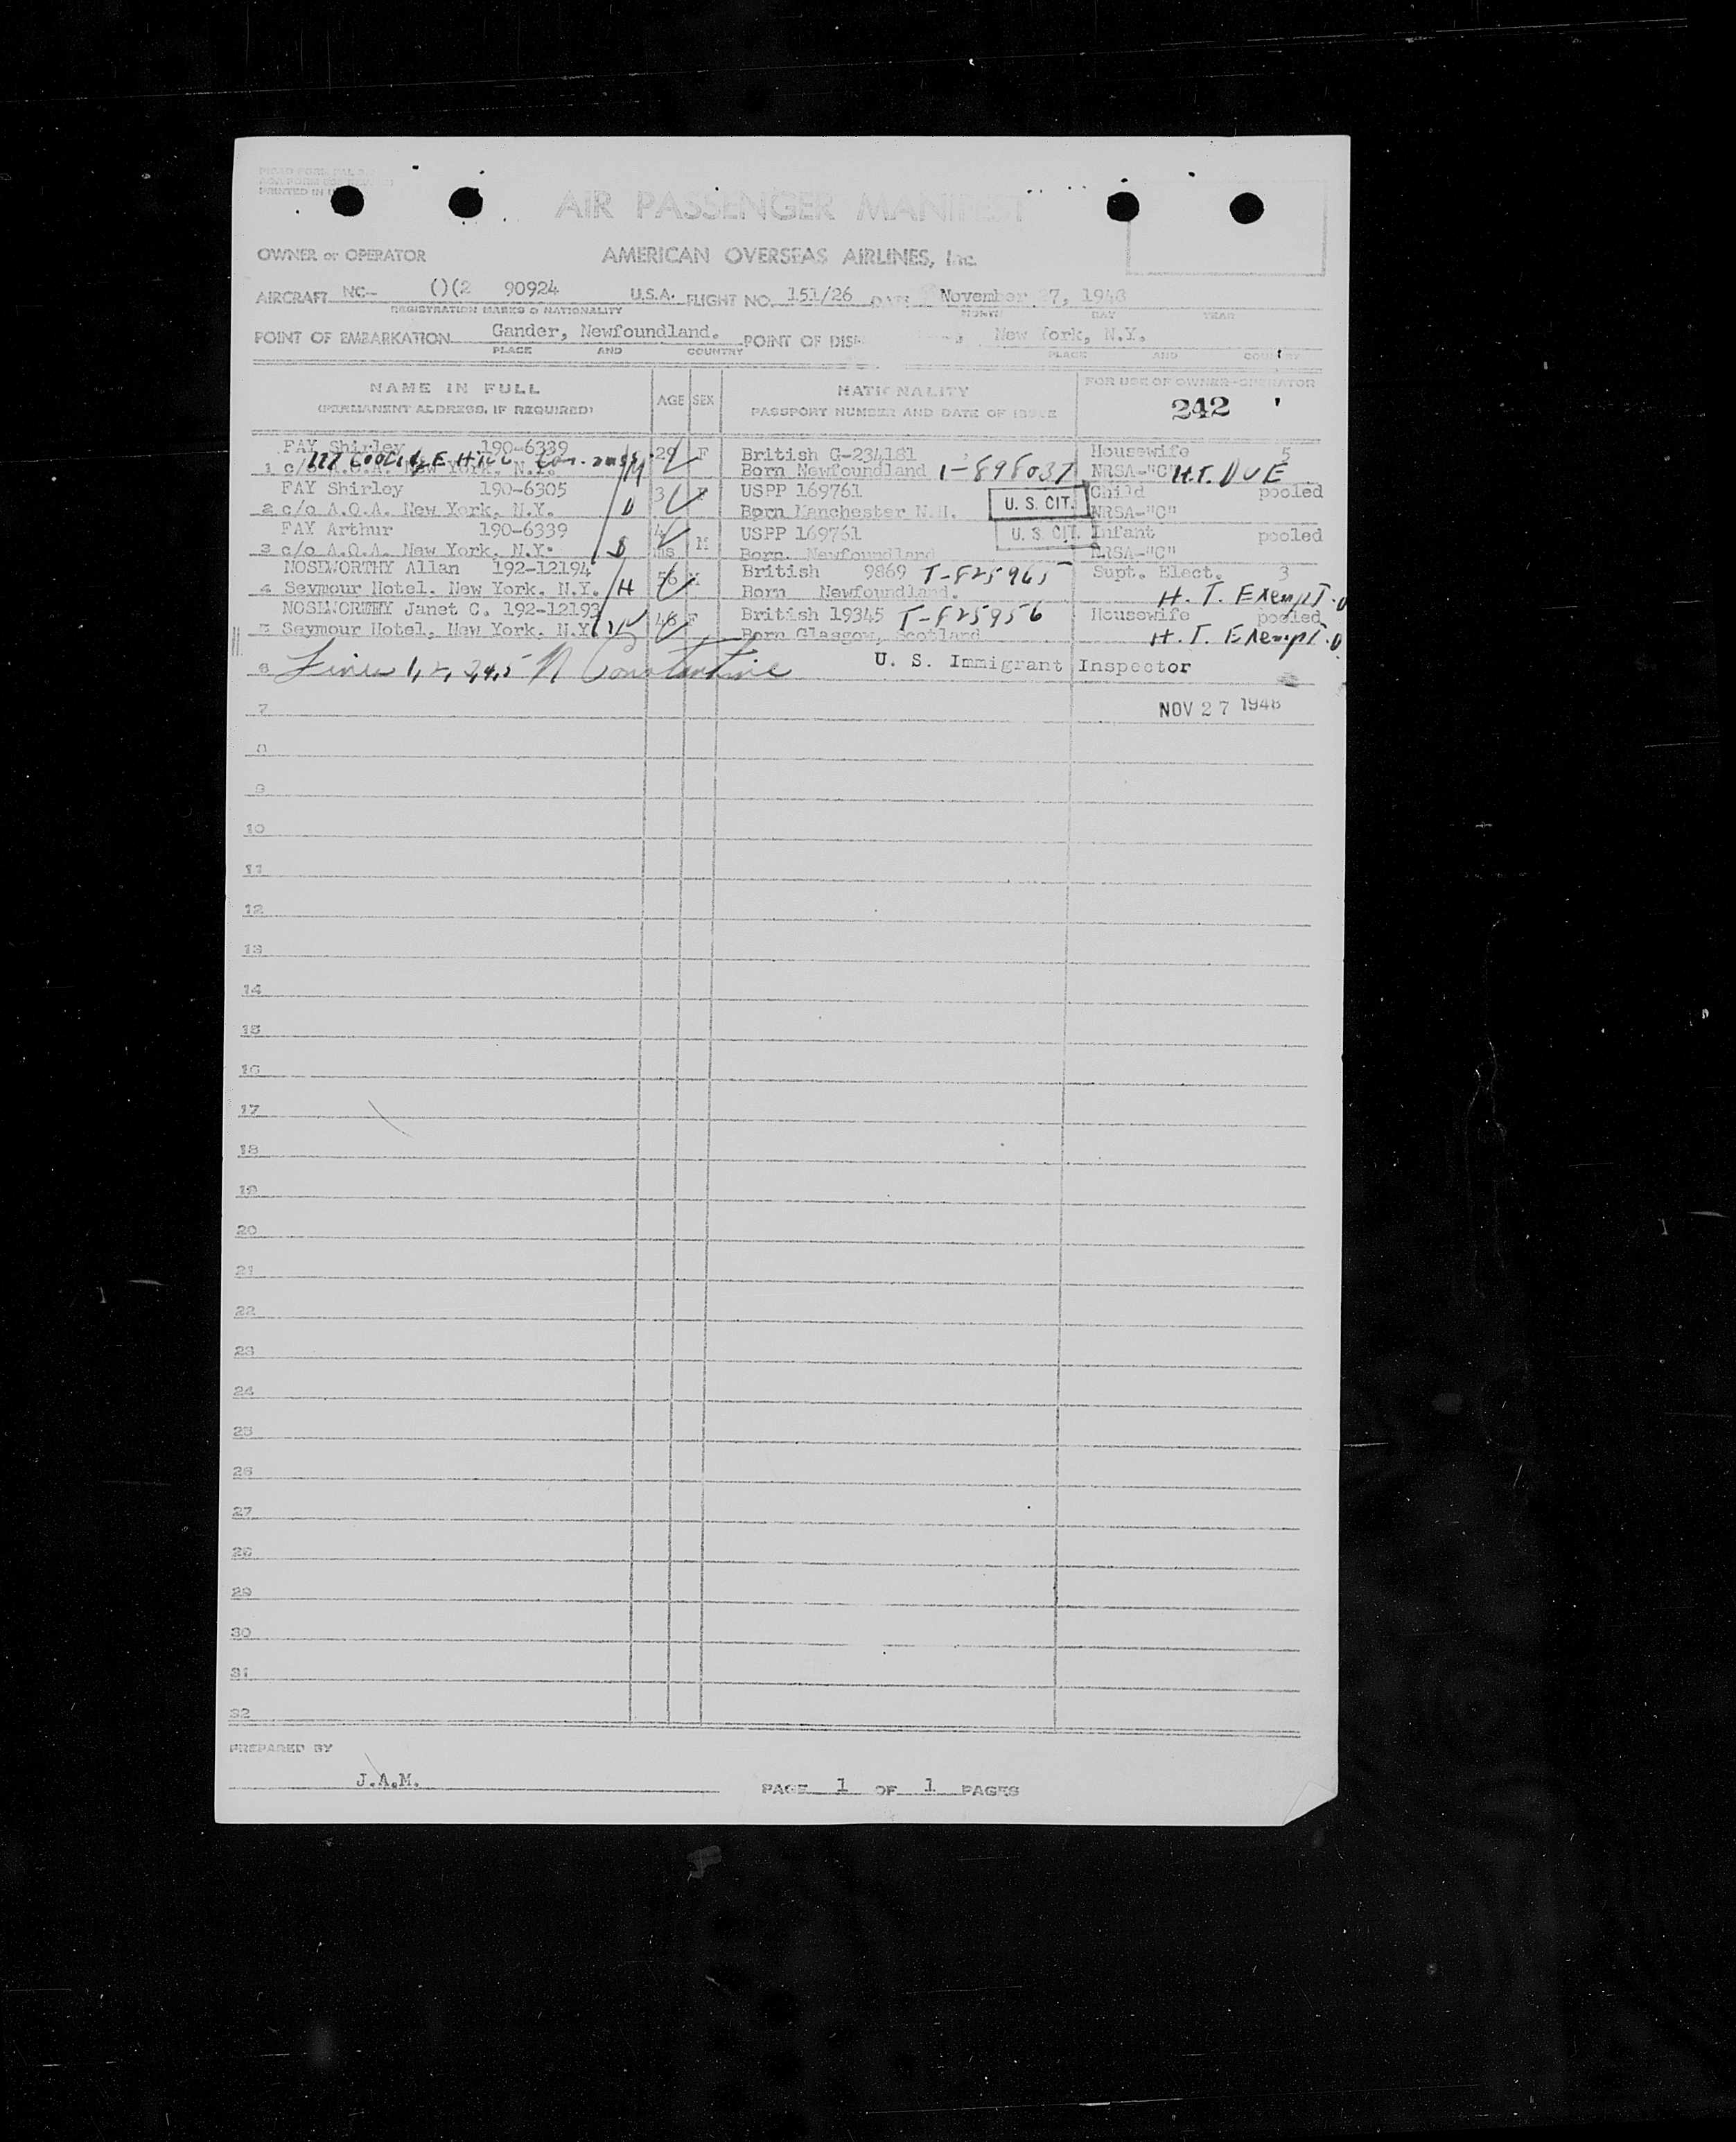 PRINTED IN
AIR PASSENGER MANIFEST
OWNER or OPERATOR AMERICAN OVERSEAS AIRLINES, Inc.
AIRCRAFT NC- ()(2 90924 U.S.A. FLIGHT NO. 151/26 DATE November 27, 1948
REGISTRATION MARKS & NATIONALITY MONTH DAY YEAR
POINT OF EMBARKATION Gander, Newfoundland. POINT OF New York, N.Y.
PLACE AND COUNTRY PLACE AND COUNTRY
NAME IN FULL AGE SEX NATIONALITY FOR USE OF OWNER-OPERATOR
(PERMANENT ADDRESS, IF REQUIRED) PASSPORT NUMBER AND DATE OF ISSUE 242
FAY Shirley 190-6339 29 F British G-234181 Housewife 5
1 c/o A.O.A. New York, N.Y. M Born Newfoundland 1-898037 NRSA-"C" H.T. DUE
FAY Shirley 190-6305 3 F USPP 169761 U. S. CIT. Child pooled
2 c/o A.O.A. New York, N.Y. D Born Manchester N.H. NRSA-"C"
FAY Arthur 190-6339 4 M USPP 169761 U. S. CIT. Infant pooled
3 c/o A.O.A. New York, N.Y. S ms Born Newfoundland NRSA-"C"
NOSEWORTHY Allan 192-12194 56 M British 9869 T-825965 Supt. Elect. 3
4 Seymour Hotel, New York, N.Y. H Born Newfoundland. H. T. Exempt.
NOSEWORTHY Janet C. 192-12193 48 F British 19345 T-825956 Housewife pooled
5 Seymour Hotel, New York, N.Y. Born Glasgow, Scotland H. T. Exempt.
6 Lines 1, 2, 3, 4, 5 N Constantine U. S. Immigrant Inspector
7 NOV 27 1948
8
9
10
11
12
13
14
15
16
17
18
19
20
21
22
23
24
25
26
27
28
29
30
31
32
PREPARED BY
J.A.M. PAGE 1 OF 1 PAGES